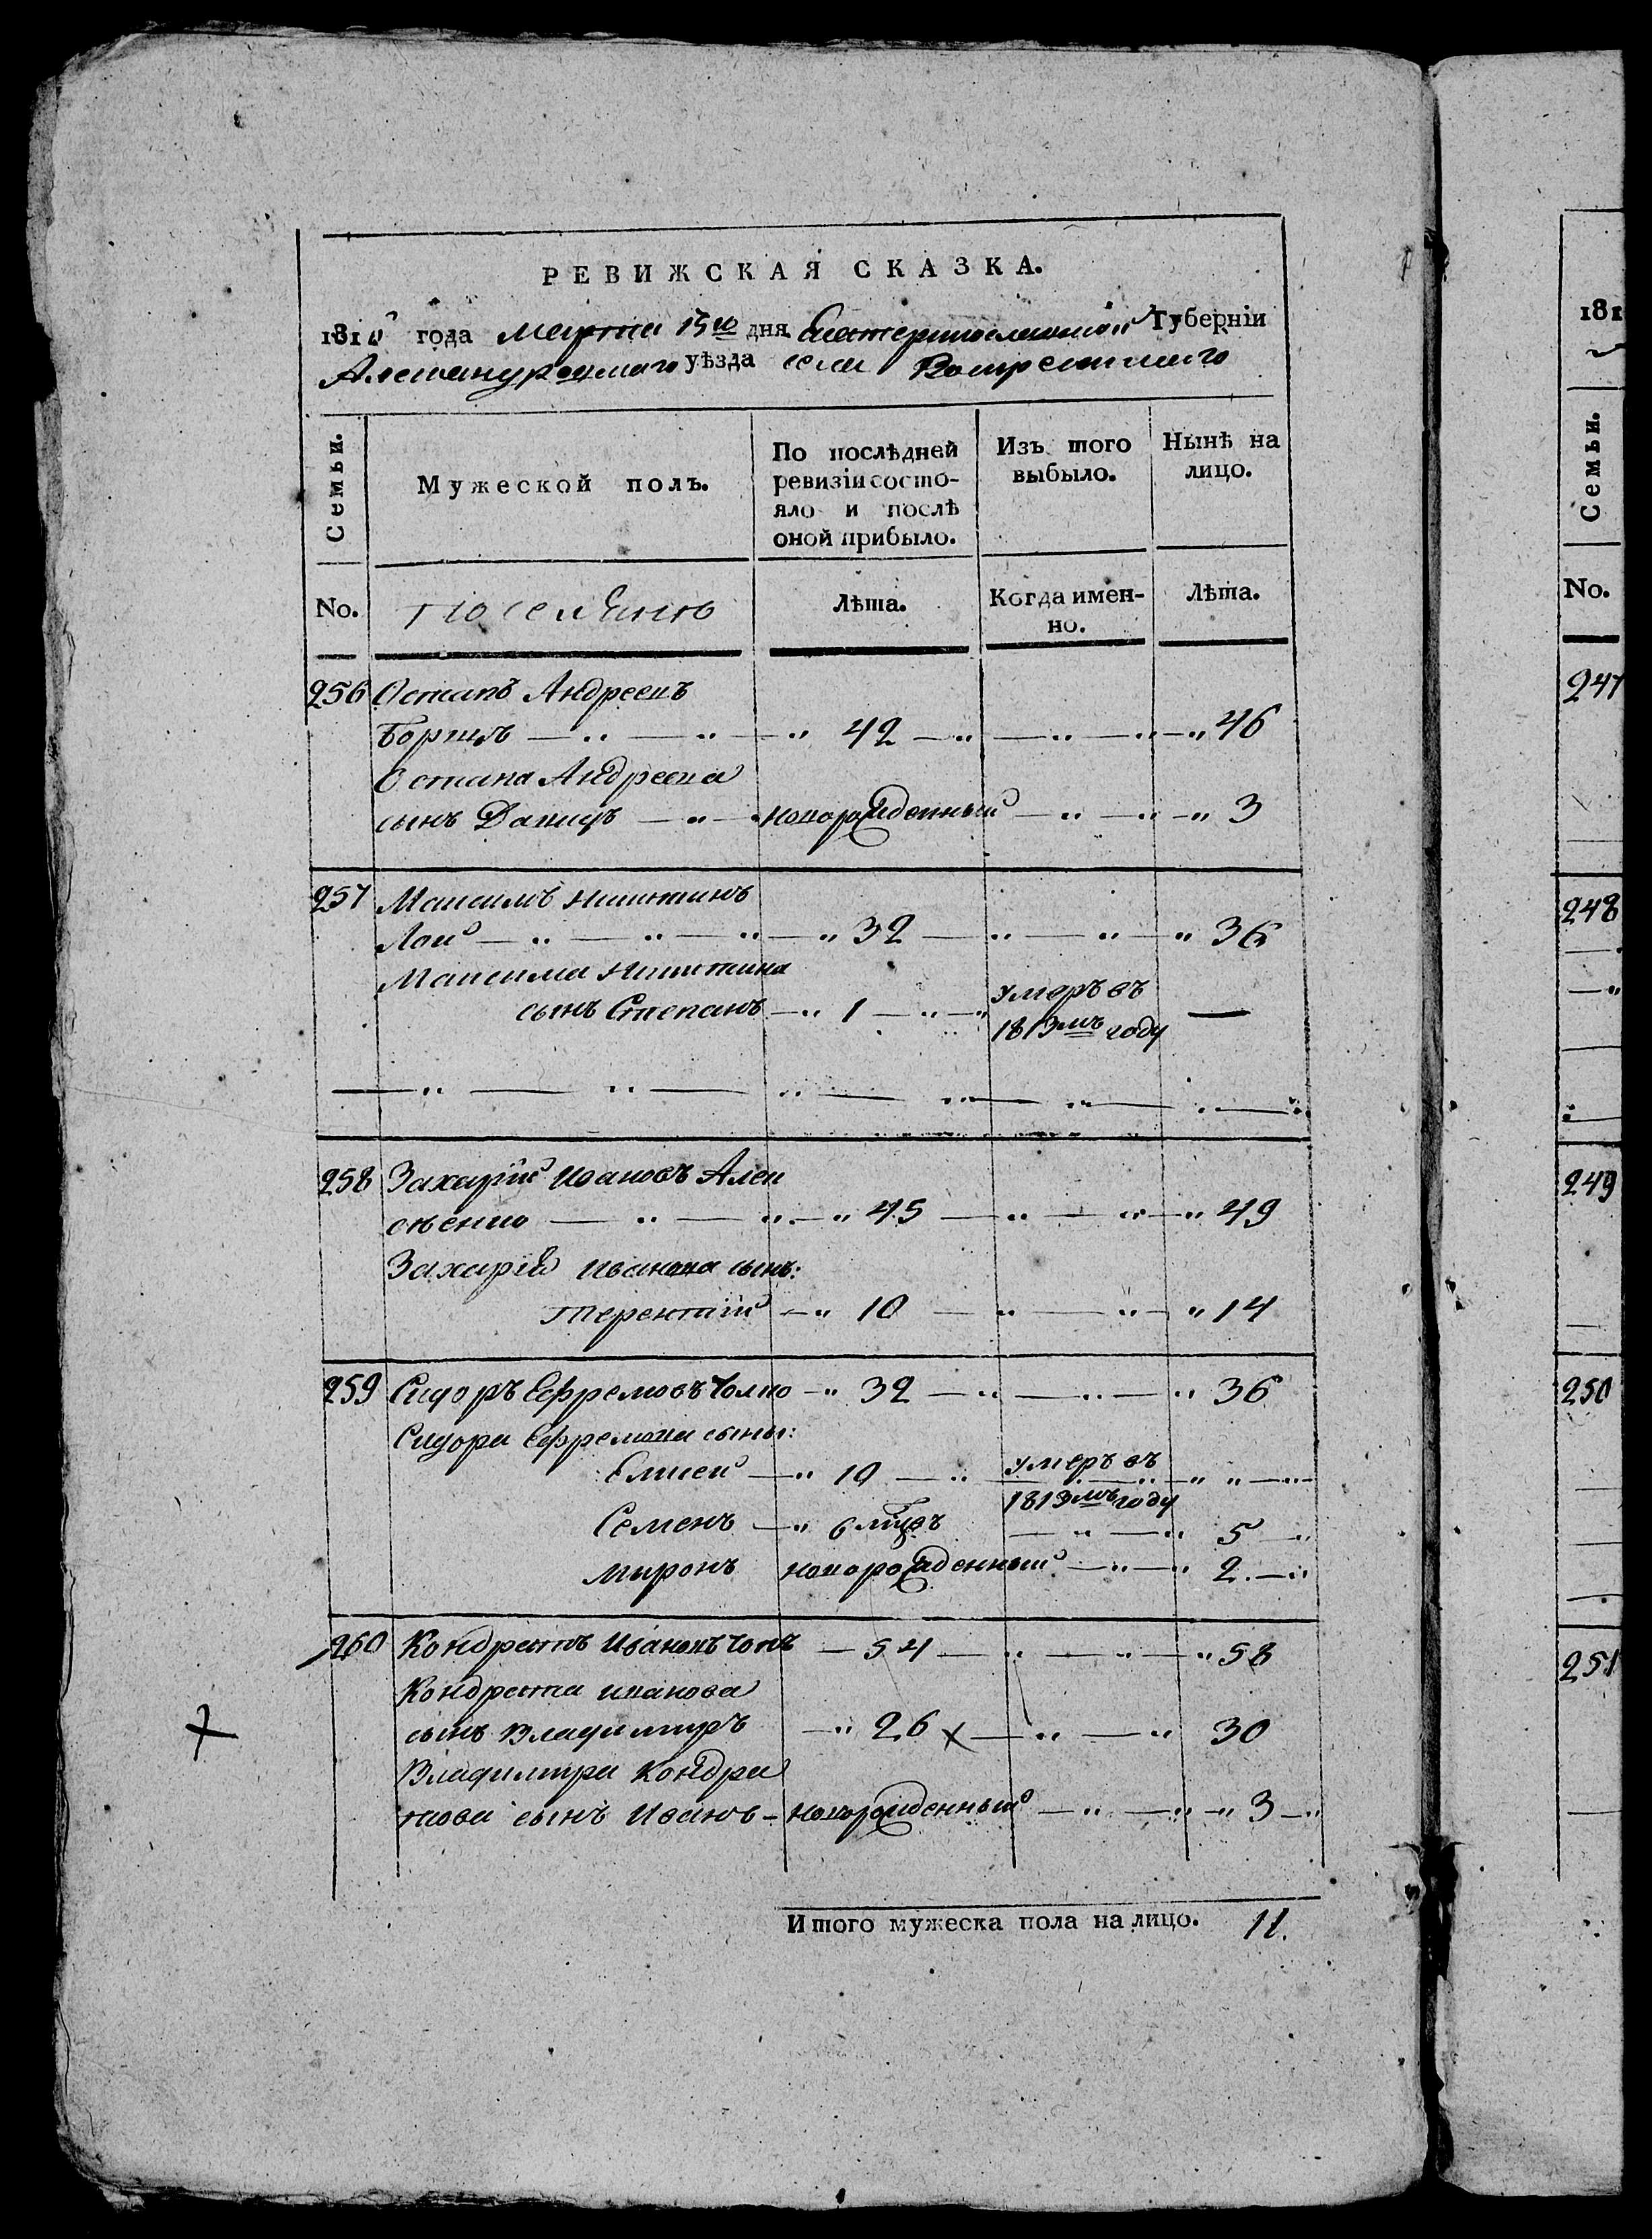 РЕВИЖСКАЯ СКАЗКА.
181 года Марта 15го дня Екатеринославской Губерніи
Александровскаго уѣзда села Воскресенскаго
Семьи.
Мужеской полъ.
По послѣдней ревизіи состо-
яло и послѣ
оной прибыло.
Изъ того
выбыло.
Нынѣ на
лицо.
No.
Поселянъ
Лѣта.
Когда имен-
но.
Лѣта.
256 Остапъ Андреевъ
42 46
Остапа Андреева
сынъ новорожденный 3
257 Максимъ Никитинъ
Лой 32 36
Максима Никитина
сынъ Степанъ 1 умеръ въ
1813мъ году —
258 Захарій Ивановъ Алек
сѣенко 45 49
Захарія Иванова сынъ:
Терентій 10 14
259 Сидоръ Ефремовъ 32 36
Сидора Ефремова сыны:
Елисей 10 умеръ въ
1813мъ году
Семенъ 6 мцовъ 5
Миронъ новорожденный 2
260 Кондратъ Ивановъ Чопъ 54 58
Кондрата Иванова
сынъ Владимиръ 26 х 30
Владимира Кондра
това сынъ Иванъ новорожденный 3
Итого мужеска пола на лицо. 11.
181
Семьи.
No.
247
248
249
250
251